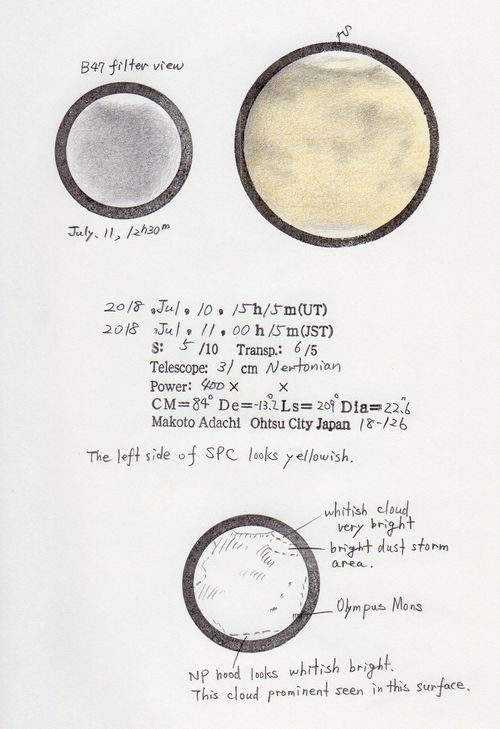 B47 filter view
July. 11, 12h30m
2018 .Jul. 10. 15h15m(UT)
2018 .Jul. 11. 00h15m(JST)
S: 5 /10 Transp.: 6/5
Telescope: 31 cm Newtonian
Power: 400 × ×
CM=84° De=-13.2° Ls=209° Dia=22.6
Makoto Adachi Ohtsu City Japan 18-126
The left side of SPC looks yellowish.
whitish cloud
very bright
bright dust storm
area.
Olympus Mons
NP hood looks whitish bright.
This cloud prominent seen in this surface.